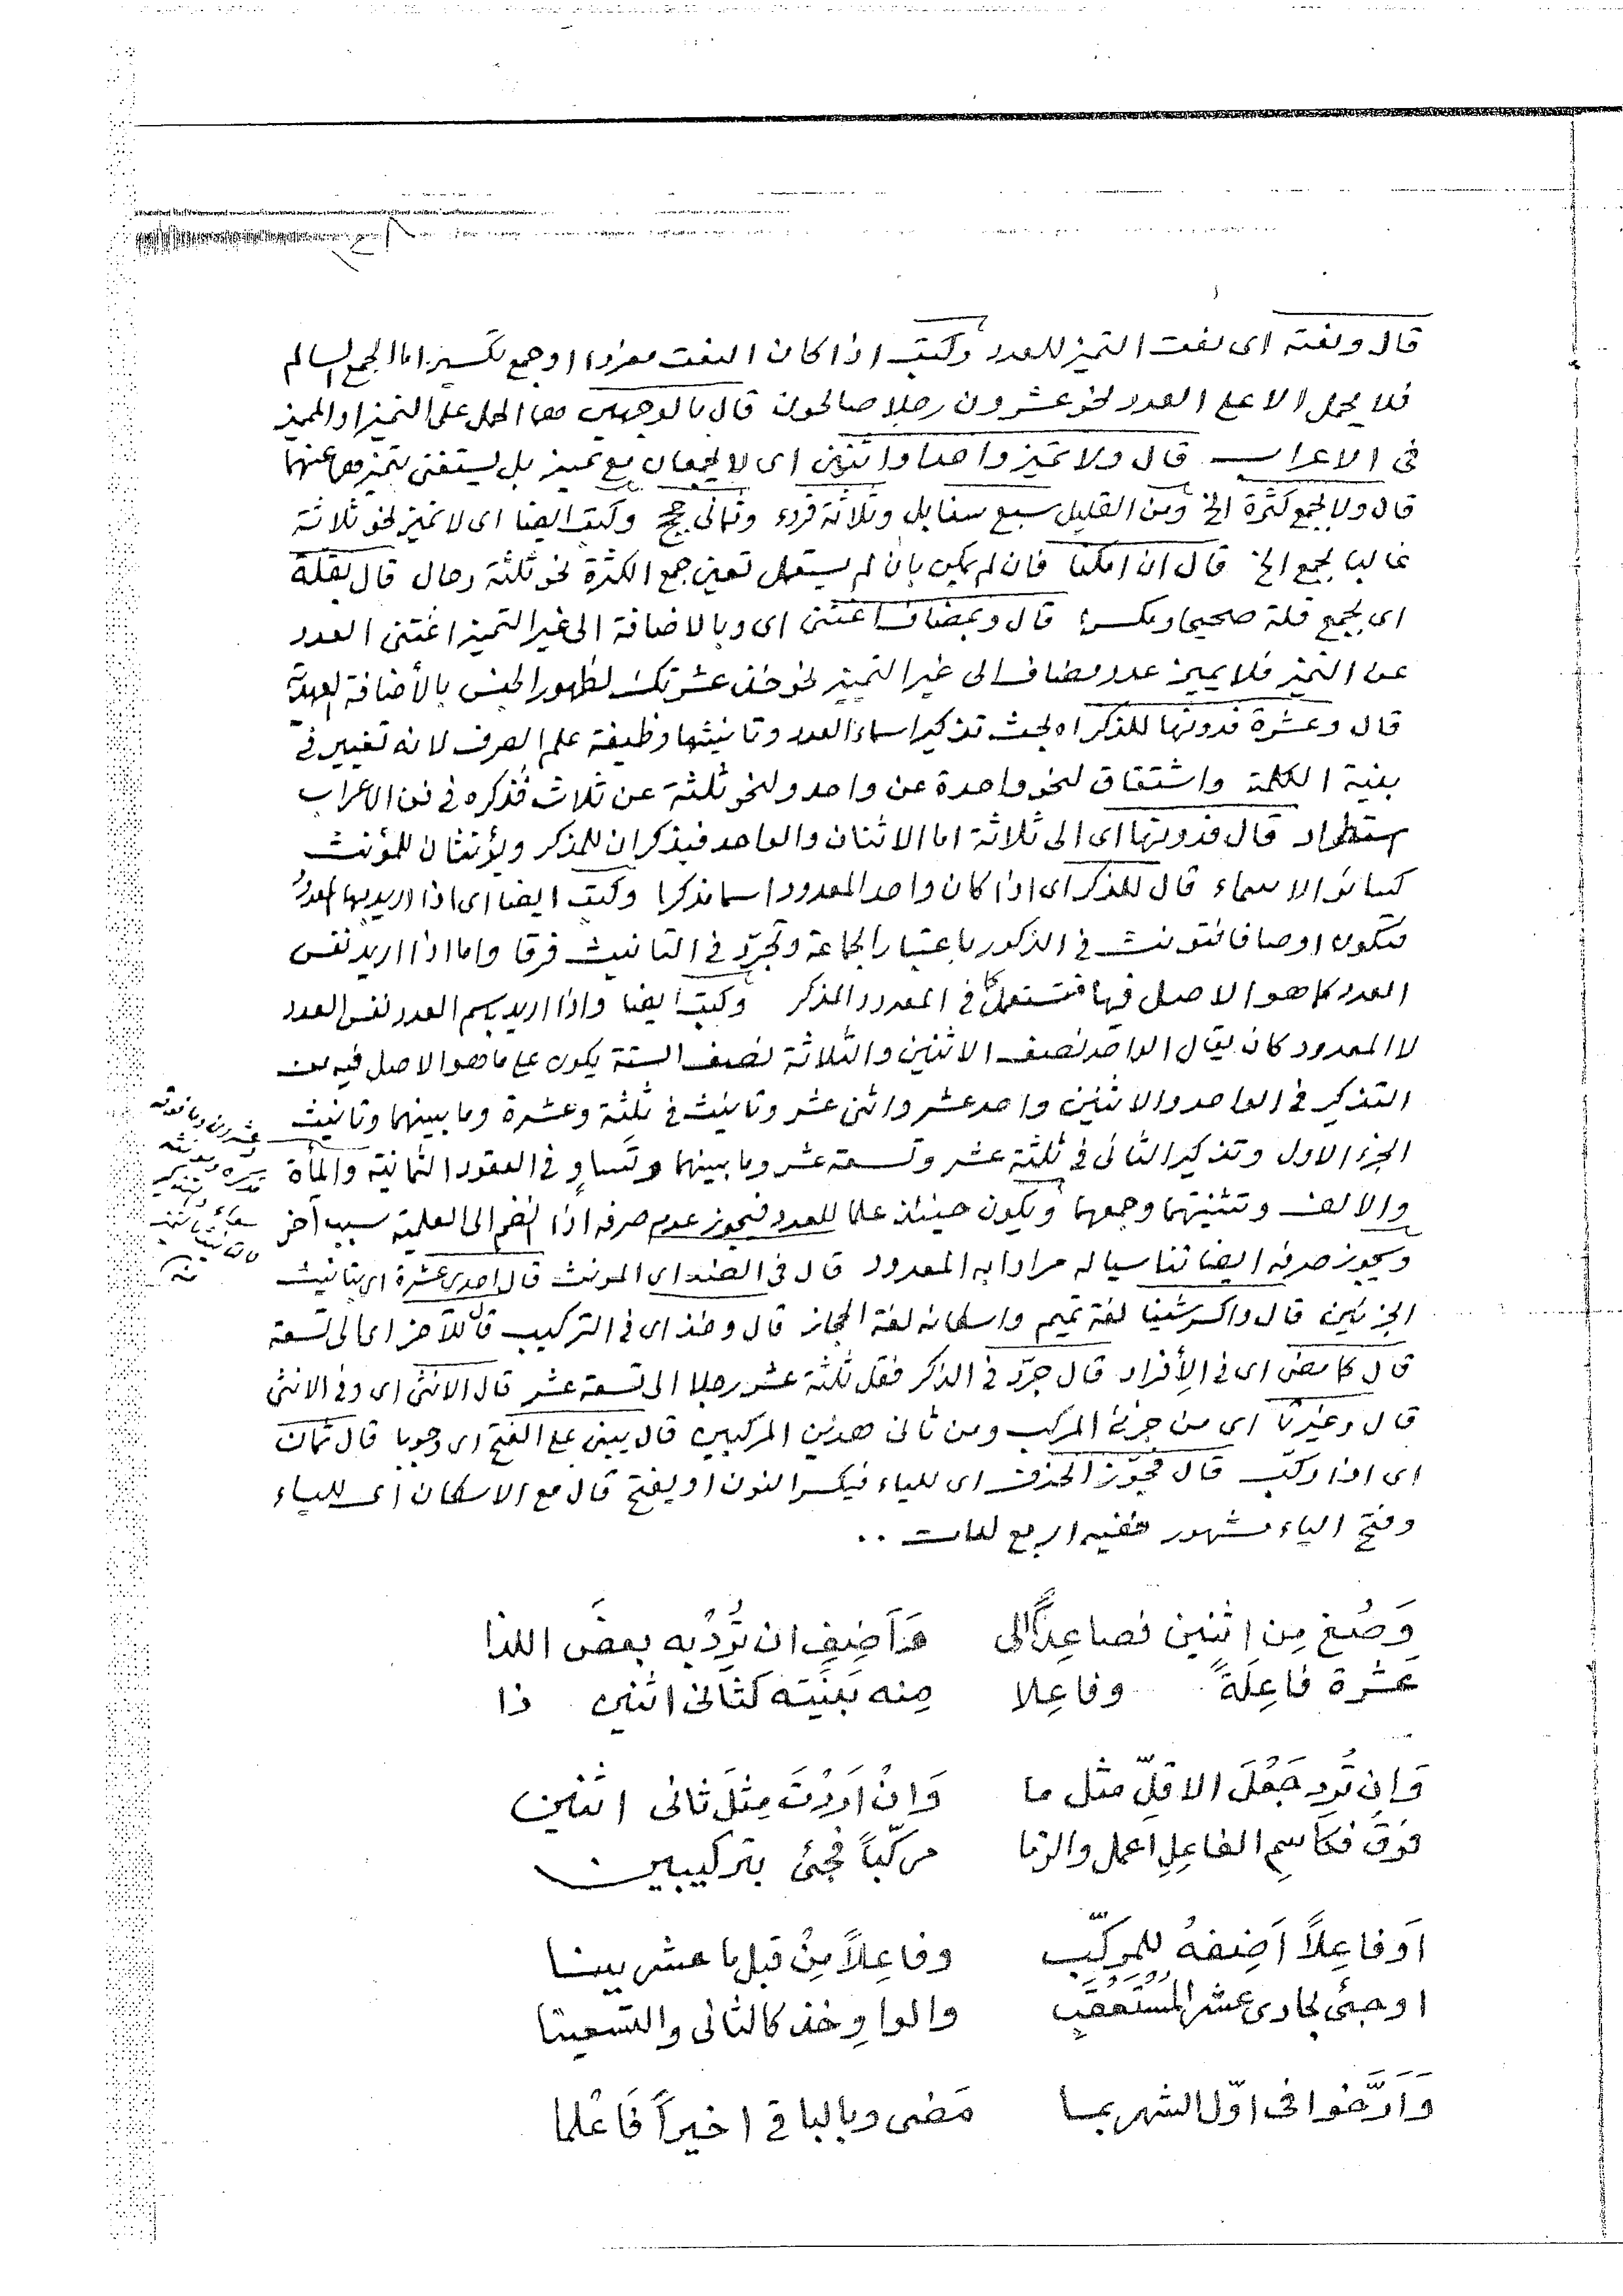 قال ونعته اى نعت التميز للعدد وكتب اذا كان النعت مفردا او جمع تكسير اما الجمع السالم
فلا يحمل الا على العدد نحو عشرون رجلا صالحون قال بالوجهين هما الحمل على التميز او المميز
فى الاعراب قال ولا تميز واحدا واثنين اى لا يجمعان مع تميز بل يستغنى بتميزهما عنهما
قال ولا بجمع كثرة الخ ومن القليل سبع سنابل وثلاثة قروء وثمانى حجج وكتب ايضا اى لا تميز نحو ثلاثة
غالبا بجمع الخ قال ان امكنا فان لم يكن بان لم يستعمل تعين جمع الكثرة نحو ثلثة رجال قال بقلة
اى بجمع قلة صحيحا ومكسرا قال وبمضاف اغتنى اى وبالاضافة الى غير التميز اغتنى العدد
عن التميز فلا يميز عدد مضاف الى غير التمييز نحو خذ عشرتك لظهور الجنس بالأضافة العهدية
قال وعشرة فدونها للذكر اه بحث تذكير اسماء العدد وتانيثها وظيفة علم الصرف لانه تغيير فى
بنية الكلمة واشتقاق لنحو واحدة عن واحد ولنحو ثلثة عن ثلاث فذكره فى فن الاعراب
استطراد قال فدونها اى الى ثلاثة اما الاثنان والواحد فيذكران للمذكر ويؤنثان للمؤنث
كسائر الاسماء قال للذكر اى اذا كان واحد المعدود اسما مذكرا وكتب ايضا اى اذا اريد بها المعدود
فتكون اوصافا فتؤنث فى الذكور باعتبار الجماعة وتجرد فى التانيث فرقا واما اذا اريد نفس
العدد كما هو الاصل فيها فتستعمل كما فى المعدود المذكر وكتب ايضا واذا اريد باسم العدد نفس العدد
لا المعدود كان يقال الواحد نصف الاثنين والثلاثة نصف الستة يكون على ما هو الاصل فيه من
التذكير فى الواحد والاثنين واحد عشر واثنى عشر وتانيث فى ثلثة وعشرة وما بينهما وتانيث
الجزء الاول وتذكير الثانى فى ثلثة عشر وتسعة عشر وما بينهما وتساو فى العقود الثمانية والمأة
عشرين وما فوقه
والالف وتثنيتهما وجمعهما ويكون حينئذ علما للعدد فيجوز عدم صرفه اذا انضم الى العلمية سبب آخر
ويجوز صرفه ايضا تناسيا له مرادا به المعدود قال فى الضد اى المونث قال احدى عشرة اى بتانيث
الجزئين قال واكسر شينا لغة تميم واسكانه لغة الحجاز قال وخذ اى فى التركيب قال للآخر اى الى تسعة
قال كما مضى اى فى الأفراد قال جرد فى الذكر فقل ثلثة عشر رجلا الى تسعة عشر قال الانثى اى وفى الانثى
قال وغيرتا اى من جزئى المركب ومن ثانى هذين المركبين قال يبنى على الفتح اى وجوبا قال ثمان
اى اذا ركب قال فجوّز الحذف اى للياء فيكسر النون او يفتح قال مع الاسكان اى للياء
وفتح الياء مشهور ففيه اربع لغات ..
وَصُغ مِن اثنين فصاعِداً الى هذا أضِفِ ان تُرِدْ به بعضَ اللذا
عَشرة فاعِلَةً وفاعِلا مِنه بَنَيته كثانى اثنين ذا
وَاِن تُرِد جَعْلَ الاقلِّ مثل ما وَاِنْ اَرَدْتَ مِثلَ ثانى اثنين
فوق فكاسمِ الفاعِلِ اعمل والزما مركّباً فجئ بتركيبين
اَو فاعِلاً اَضِفهُ للمركّب وفاعِلاً مِنْ قبل ما عشر بينا
او جئ بحادى عشر المُستَعقبِ والواو خذ كالثانى والتسعينا
وَاَرَّخوا فى اوّل الشهر بما مَضى وبالباقى اخيراً فَاعْلما